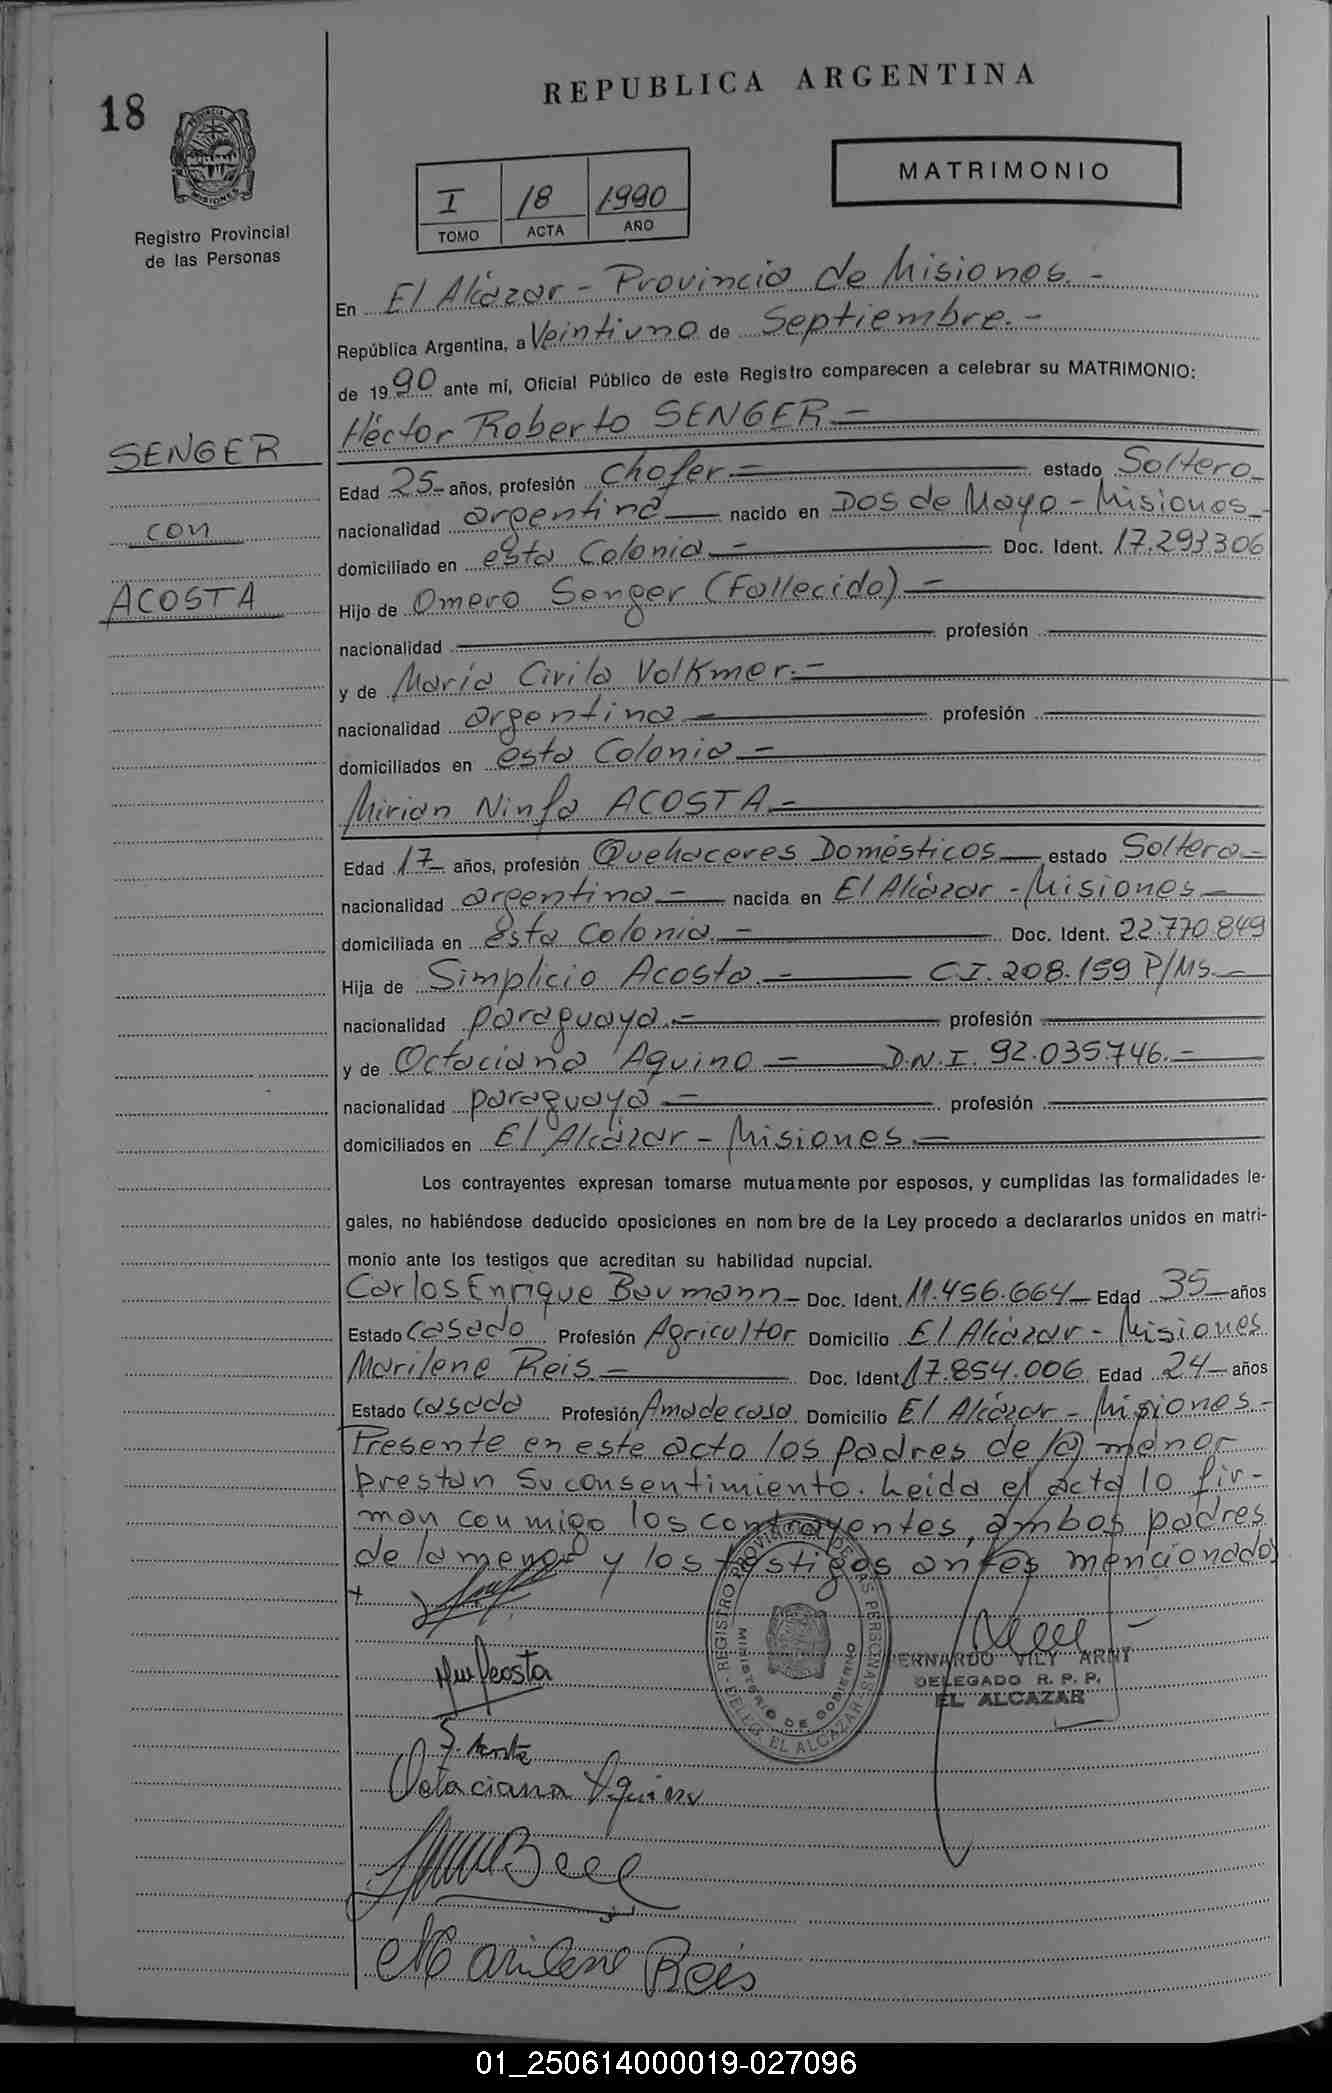 18
REPUBLICA ARGENTINA
MATRIMONIO
PROVINCIA DE
MISIONES
Registro Provincial
de las Personas
I 18 1990
TOMO ACTA AÑO
En El Alcázar - Provincia de Misiones.-
República Argentina, a Veintiuno de Septiembre.-
de 1990 ante mí, Oficial Público de este Registro comparecen a celebrar su MATRIMONIO:
Héctor Roberto SENGER.-
SENGER
con
ACOSTA
Edad 25- años, profesión Chofer.- estado Soltero-
nacionalidad argentina- nacido en Dos de Mayo - Misiones-
domiciliado en esta Colonia.- Doc. Ident. 17.293.306
Hijo de Omero Senger (Fallecido).-
nacionalidad profesión
y de María Civila Volkmer.-
nacionalidad argentina- profesión
domiciliados en esta Colonia.-
Mirian Ninfa ACOSTA.-
Edad 17- años, profesión Quehaceres Domésticos- estado Soltera-
nacionalidad argentina.- nacida en El Alcázar - Misiones-
domiciliada en esta Colonia.- Doc. Ident. 22.770.849
Hija de Simplicio Acosta.- C.I. 208.159 P/Ms.-
nacionalidad paraguaya.- profesión
y de Octaciana Aquino - D.N.I. 92.035.746.-
nacionalidad paraguaya- profesión
domiciliados en El Alcázar - Misiones.-
Los contrayentes expresan tomarse mutuamente por esposos, y cumplidas las formalidades le-
gales, no habiéndose deducido oposiciones en nom bre de la Ley procedo a declararlos unidos en matri-
monio ante los testigos que acreditan su habilidad nupcial.
Carlos Enrique Baumann- Doc. Ident. 11.456.664- Edad 35- años
Estado Casado Profesión Agricultor Domicilio El Alcázar - Misiones
Marilene Reis.- Doc. Ident. 17.854.006 Edad 24- años
Estado Casada Profesión Ama de casa Domicilio El Alcázar - Misiones-
Presente en este acto los padres de la menor
prestan su consentimiento. Leida el acta lo fir-
man con migo los contrayentes, ambos padres
de la menor y los testigos antes mencionados
REGISTRO PROVINCIAL DE LAS PERSONAS - DELEG. EL ALCAZAR
MINISTERIO DE GOBIERNO
BERNARDO VILY ARNY
DELEGADO R. P. P.
EL ALCAZAR
Acosta
Octaciana Aquino
Marilene Reis
01_250614000019-027096